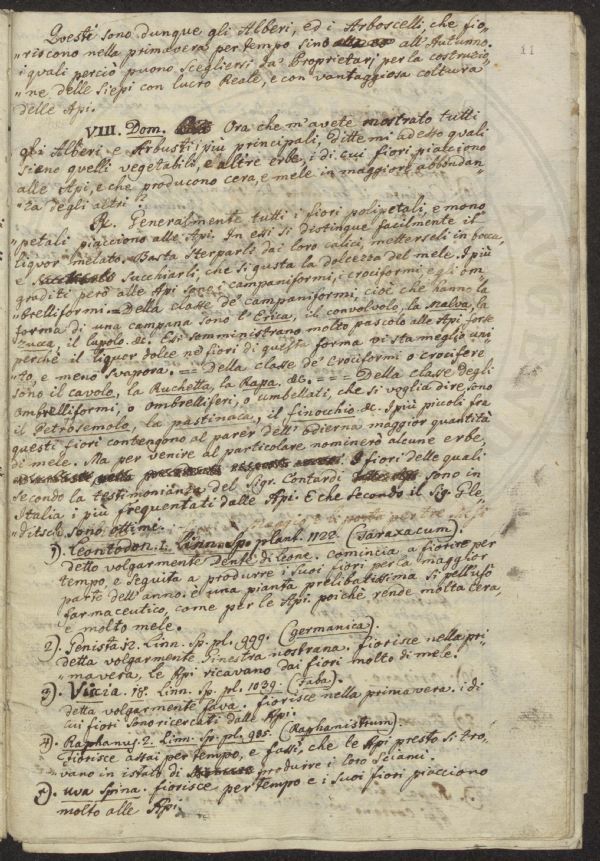 11
Questi sono dunque gli Alberi, ed i Arboscelli che fio„
„riscono nella primavera per tempo sino all'Autunno.
i quali perciò puono scegliersi da' Proprietarj per la costruzio„
„ne delle Siepi con lucro Reale, e con vantaggiosa coltura
delle Api.
VIII. Dom. Ora che m'avete mostrato tutti
gli Alberi e Arbusti i più principali, ditte mi adesso quali
sieno quelli vegetabili, e altre erbe, i di cui fiori piacciono
alle Api, e che producono cera, e mele in maggiore abbondan„
„za degli altri?
R. Generalmente tutti i fiori polipetali, e mono„
„petali piacciono alle Api. In essi si distingue facilmente il
liquor melato. Basta sterparli dai loro calici, metterseli in bocca,
e Succhiarli, che si gusta la dolcezza del mele. I più
graditi però alle Api sono i campaniformi, i crociformi e gli om„
„brelliformi. = Della classe de' campaniformi, cioè che hanno la
forma di una campana sono l'Erica, il convolvolo, la Malva, la
Zucca, il lupolo &c. Essi somministrano molto pascolo alle Api, forse
perchè il liquor dolce ne' fiori di questa forma vi sta meglio uni„
„to, e meno svapora. == Della classe de' crociformi o crocifere
sono il cavolo, la Ruchetta, la Rapa. &c. === Della classe degli
ombrelliformi, o ombrelliferi, o umbellati, che si voglia dire, sono
il Petrosemolo, la pastinaca, il finocchio &c. I più piccoli fra
questi fiori contengono al parer dell'odierna maggior quantità
di mele. Ma per venire al particolare nominerò alcune erbe,
I fiori delle quali
secondo la testimonianza del Sigr. Contardi sono in
Italia i più frequentati dalle Api. E che secondo il Sig. Gle„
„ditsch sono ottime.
1). Leontodon. 1. Linn. Sp. plant. 1122. (Taraxacum).
detto volgarmente Dente di leone. comincia a fiorire per
tempo, e seguita a produrre i suoi fiori per la maggior
parte dell'anno. è una pianta prelibatissima sì pell'uso
farmaceutico, come per le Api. poichè rende molta cera,
e molto mele.
2). Genista 12. Linn. Sp. pl. 999. (germanica).
detta volgarmente Ginestra nostrana. fiorisce nella pri„
„mavera, le Api ricavano dai fiori molto di mele.
3). Vicia. 18. Linn. Sp. pl. 1039. (Faba).
detta volgarmente fava. fiorisce nella primavera. i di
lui fiori sono ricercati dalle Api.
4). Raphanus. 2. Linn. Sp. pl. 985. (Raphanistrum).
fiorisce assai per tempo, e fassi, che le Api presto si tro„
„vano in istato di produrre i loro Sciami.
5). uva Spina. fiorisce per tempo e i suoi fiori piacciono
molto alle Api.